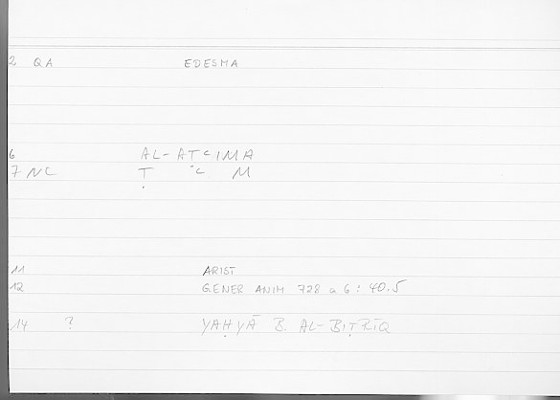 2 QA EDESMA
6 AL-AṬʿIMA
7 NC Ṭ ʿ M
11 ARIST
12 GENER ANIM 728 a 6 : 40.5
14 ? YAḤYĀ B. AL-BIṬRĪQ